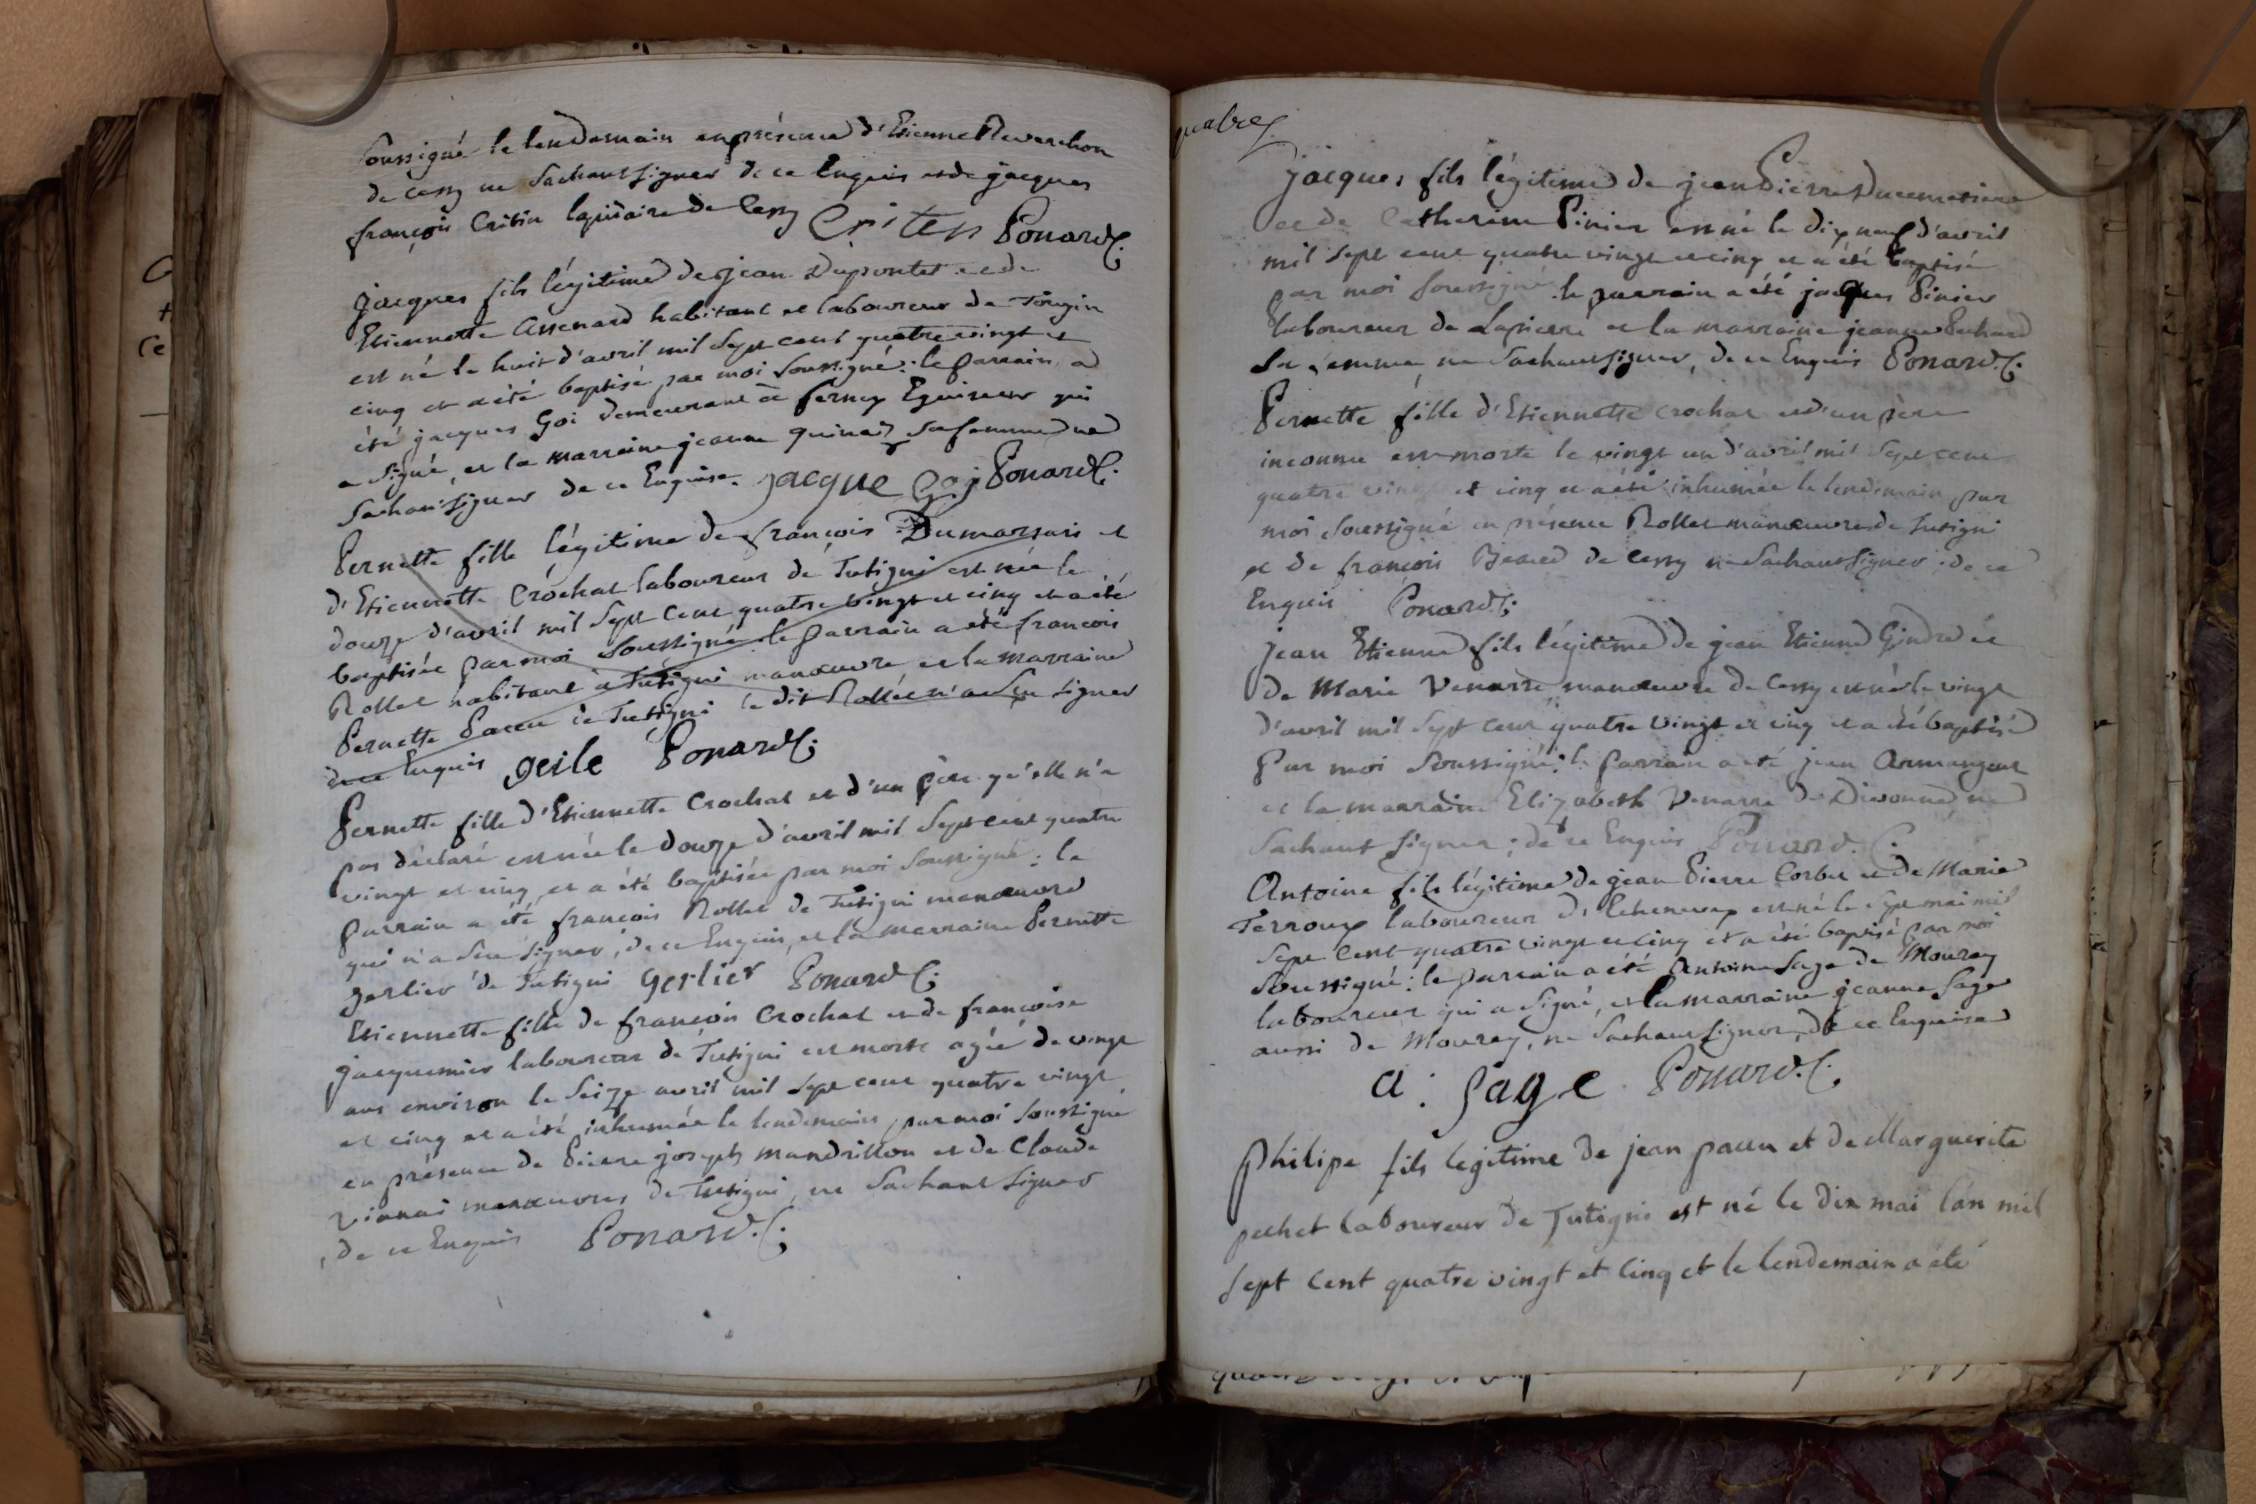 soussigné le lendemain en présence d'Etienne Reverchon
de Cessy ne sachant signer de ce Enquis et de jacques
françois Critin lapidaire de Cessy Criten Ponard C.
jacques fils légitime de jean Dupontet et de
Etiennette Assenard habitant et laboureur de Tougin
est né le huit d'avril mil sept cent quatre vingt et
cinq et a été baptisé par moi soussigné: le parrain a
été jacques Goi demeurant à ferney qui
a signé, et la marraine jeanne quinai sa femme ne
sachant signer de ce Enquise. jacque goj Ponard C.
Pernette fille légitime de françois Dumarsais et
d'Etiennette Crochat laboureur de Tutigni est née le
douze d'avril mil sept cent quatre vingt et cinq et a été
baptisée par moi soussigné le parrain a été françois
Rollet habitant à Tutigni manœuvre et la marraine
Pernette Paccu de Tutigni le dit Rollet n'a su signer
de ce Enquis Ponard C.
Pernette fille d'Etiennette Crochat et d'un père qu'elle n'a
pas déclaré est née le douze d'avril mil sept cent quatre
vingt et cinq et a été baptisée par moi soussigné: le
parrain a été françois Rollet de Tutigni manœuvre
qui n'a seu signer, de ce Enquis, et la marraine Pernette
gerlier de Tutigni gerlier Ponard C.
Etiennette fille de françois Crochat et de françoise
jacquemier laboureur de Tutigni est morte agée de vingt
ans environ le seize avril mil sept cent quatre vingt
et cinq et a été inhumée le lendemain par moi soussigné
en présence de Pierre joseph Mandrillon et de Claude
Vianai manœuvres de Tutigni, ne sachant signer
, de ce Enquis Ponard. C.
jacques fils légitime de jean Pierre Ducimetiere
et de Catherine Pinier est né le dix neuf d'avril
mil sept cent quatre vingt et cinq et a été baptisé
par moi soussigné le parrain a été jacques Pinier
laboureur de Lapierre et la marraine jeanne Pechard
sa femme, ne sachant signer, de ce Enquis Ponard. C.
Pernette fille d'Etiennette Crochat et d'un père
inconnu est morte le vingt un d'avril mil sept cent
quatre vingt et cinq et a été inhumée le lendemain par
moi soussigné en présence Rollet manœuvre de Tutigni
et de françois de Cessy ne sachant signer; de ce
Enquis Ponard C.
jean Etienne fils légitime de jean Etienne Gindre et
de Marie Venarre manœuvre de Cessy est né le vingt
d'avril mil sept cent quatre vingt et cinq et a été baptisé
Par moi soussigné: le parrain a été jean Armangeat
et la marraine Elizabeth Venarre de Divonne ne
sachant signer; de ce Enquis Ponard. C.
Antoine fils légitime de jean Pierre Corbet et de Marie
Terroux laboureur d'Echenevex est né le sept mai mil
sept cent quatre vingt et cinq et a été baptisé par moi
soussigné: le parrain a été Antoine Sage de Mourex
laboureur qui a signé, et la marraine jeanne Sage
aussi de Mourex, ne sachant signer, de ce Enquise
a. sage Ponard. C.
Philipe fils legitime de jean paccu et de Marguerite
pechet laboureur de Tutigni est né le dix mai l'an mil
sept cent quatre vingt et cinq et le lendemain a été